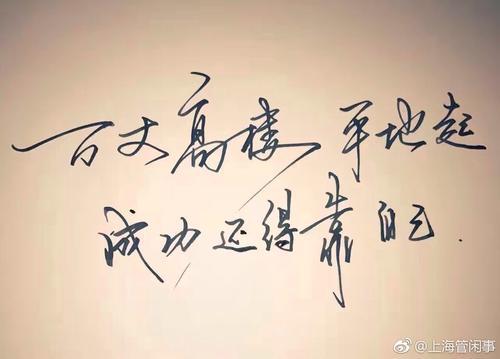 百丈高楼 平地起
成功还得靠自己.
@上海管闲事